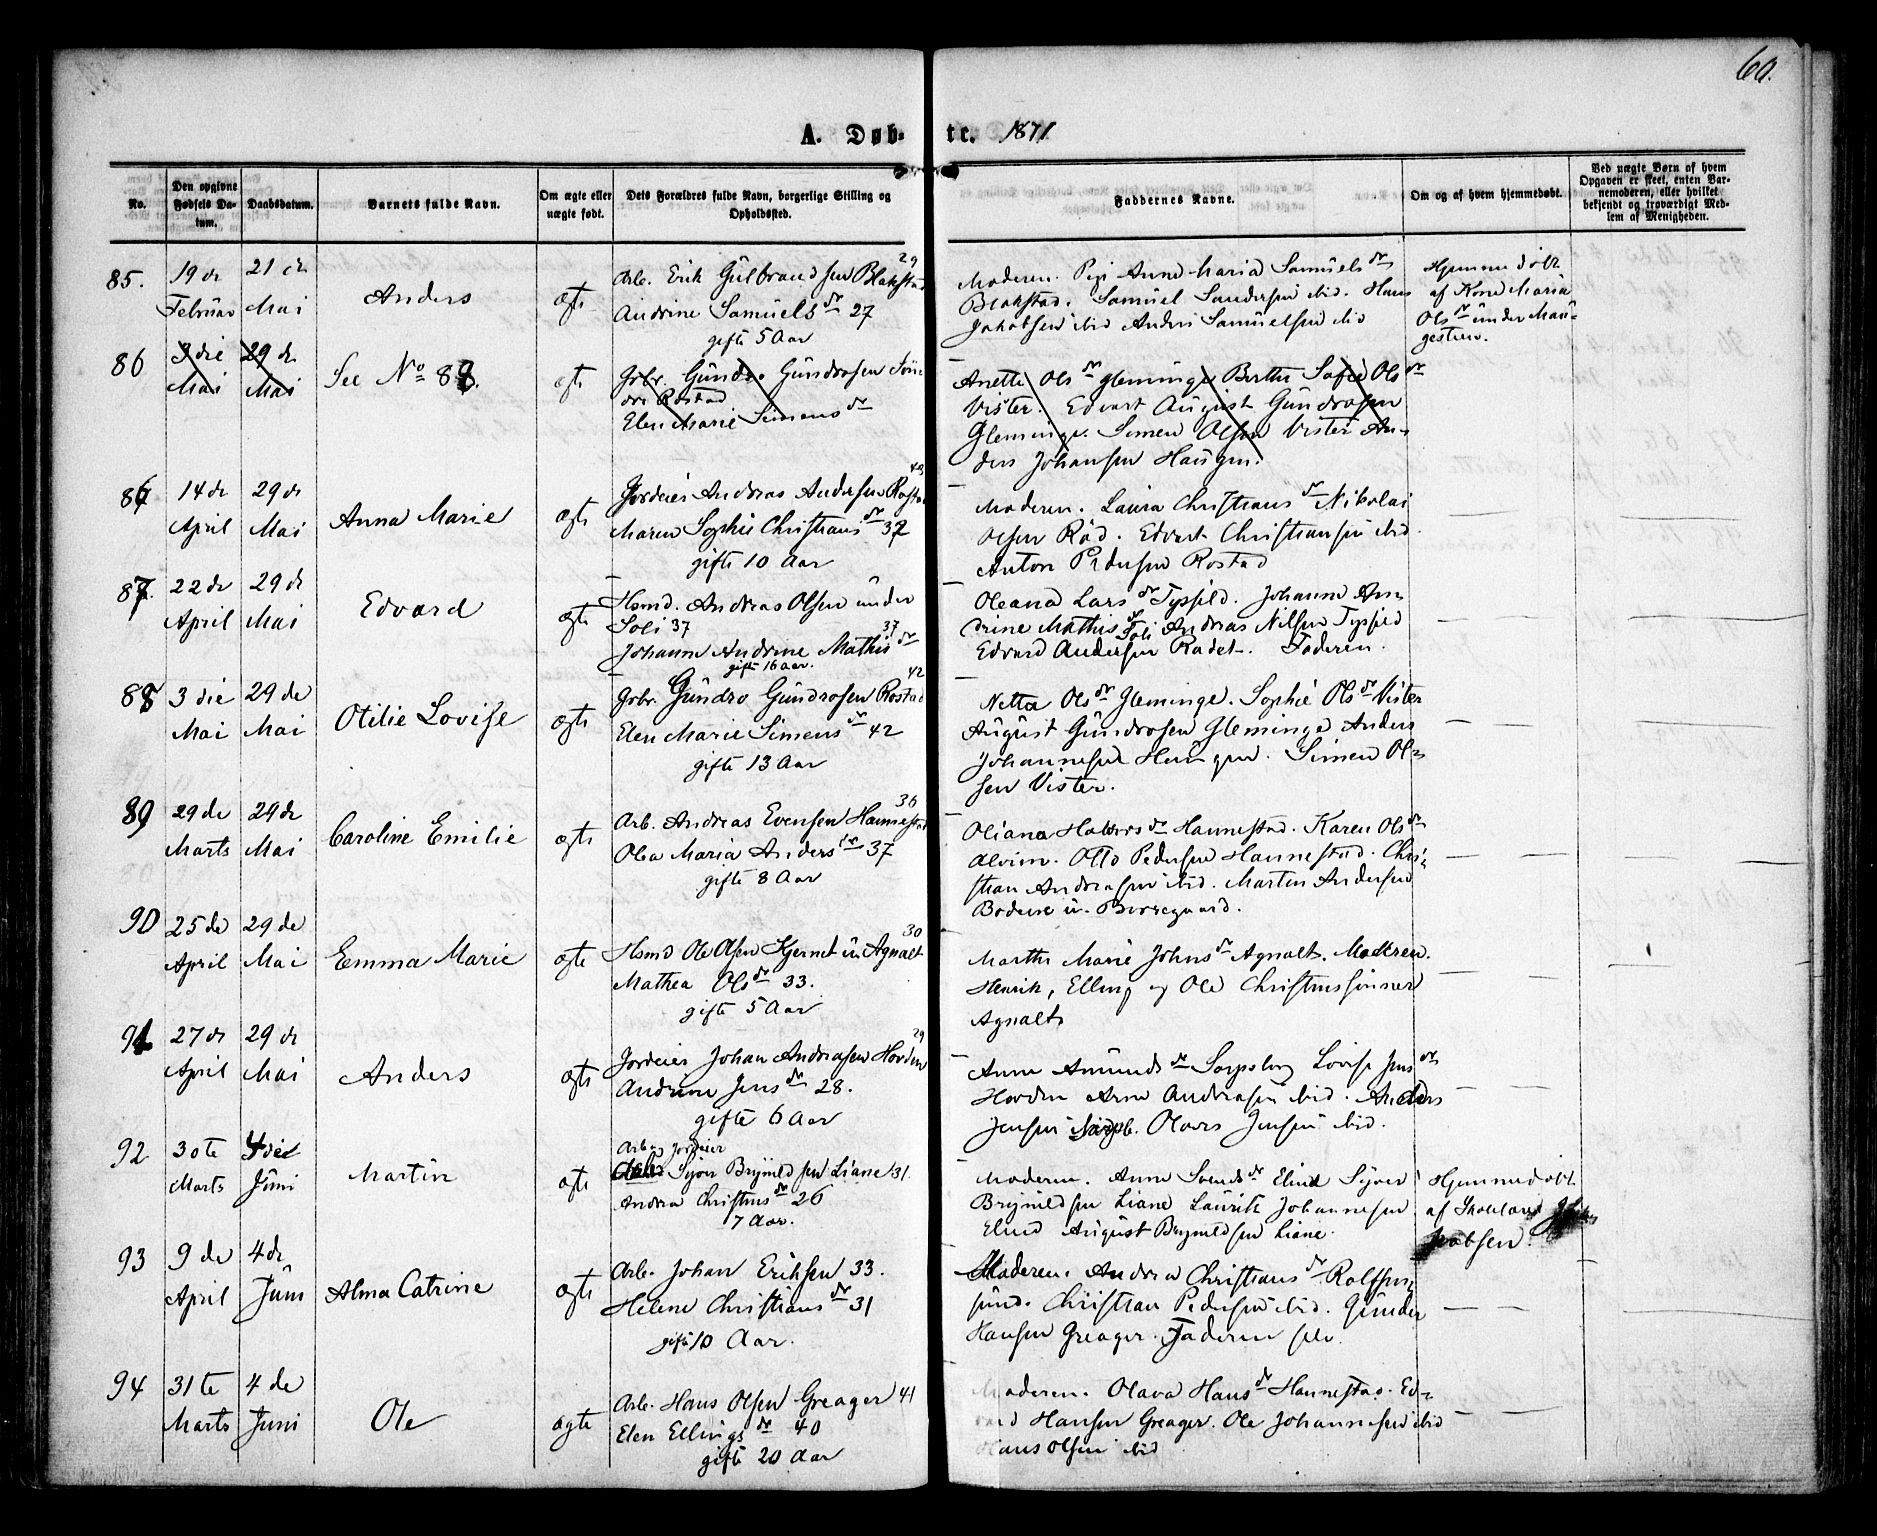 60.
A. Døb- te. 1871
No.
Den opgivne Fødsels Datum.
Daabsdatum.
Barnets fulde Navn.
Om ægte eller uægte født.
Dets Forældres fulde Navn, borgerlige Stilling og Opholdssted.
Faddernes Navne.
Om og af hvem hjemmedøbt.
Ved uægte Børn af hvem Opgaven er skeet, enten Barnemoderen, eller hvilket bekjendt og troværdigt Medlem af Menigheden.
85.
19 de
Februar
21 de
Mai
Anders
ægte
29
Arb. Erik Gulbrandsen Blakstad
Andrine Samuels dr 27
gifte 5 Aar
Moderen. Anne Maria Samuels dr
Blakstad. Samuel Sandersen ibid. Hans
Jakobsen ibid Anders Samuelsen ibid
Hjemmedøbt
af Kone Maria
Ols dr under
86
3 die
Mai
29 de
Mai
See No 88.
ægte
Grbr. Gundro Gundrosen
Rostad
Elen Marie Simens dr
Anette Ols dr Gleminge Berthe Sofie Ols dr
Vister. Edvart August Gundrosen
Gleminge. Simen Olsen Vister An-
ders Johansen Haugen.
86
14 de
April
29 de
Mai
Anna Marie
ægte
Jordeier Andreas Andersen Rostad
Maren Sophie Christians dr 37
gifte 10 Aar
Moderen. Laura Christians dr Nikolai
Olsen Rød. Edvart Christiansen ibid.
Anton Pedersen Rostad
87.
22 de
April
29 de
Mai
Edvard
ægte
Hsmd. Andreas Olsen under
Soli 37
37
Johanne Andrine Mathis dr
gifte 16 aar.
Oleana Lars dr Johanne An-
drine Mathis dr Soli Andreas Nilsen
Edvard Andersen Radet. Faderen.
88
3 die
Mai
29 de
Mai
Otilie Lovise
ægte
42
Grbr. Gundro Gundrosen Rostad
Elen Marie Simens dr 42
gifte 13 Aar
Netta Ols dr Gleminge. Sophie Ols dr Vister
August Gundrosen Gleminge Anders
Johannesen Haugen. Simen Ol-
sen Vister.
89
29 de
Marts
29 de
Mai
Caroline Emilie
ægte
36
Arb. Andreas Evensen Hannestad
Olea Maria Anders dr 37
gifte 8 Aar
Oliana Halvors dr Hannestad. Karen Ols dr
Alvim. Otto Pedersen Hannestad. Chri-
stian Andreasen ibid. Martin Andersen
Bodene u. Borregaard.
90
25 de
April
29 de
Mai
Emma Marie
ægte
30
Hsmd Ole Olsen Kjernet u. Agnalt
Mathea Ols dr 33.
gifte 5 Aar
Marthe Marie Johns dr Agnalt. Moderen.
Henrik, Elling og Ole Christenssønner
Agnalt
91
27 de
April
29 de
Mai
Anders
ægte
29
Jordeier Johan Andreasen Horden
Andrine Jens dr 28.
gifte 6 Aar
Anne Amunds dr Sarpsborg Lovise Jens dr
Horden Arne Andreasen ibid. Anders
Jensen Sarpsb. Olaves Jensen ibid.
92
30te
Marts
4 die
Juni
Martin
ægte
Arb. og Jordeier
Syver Brynildsen Liane 31.
Andrea Christens dr 26
7 Aar.
Moderen. Anne Svends dr Elind Syver
Brynildsen Liane Laurits Johannesen
Elind August Brynildsen Liane.
Hjemmedøbt
af Skolelærer
Jakobsen
93
9 de
April
4 de
Juni
Alma Catrine
ægte
Arb. Johan Eriksen 33.
Helene Christians dr 31
gifte 10 Aar.
Moderen. Andrea Christians dr Rolfsøy
sund. Christian Pedersen ibid. Gunder
Hansen Greager. Faderen selv.
94
31te
Marts
4 de
Juni
Ole
ægte
Arb. Hans Olsen Greager 41
Elen Ellings dr 40
gifte 20 Aar
Moderen. Olava Hans dr Hannestad. Ed-
vard Hansen Greager. Ole Johannesen ibid
Hans Olsen ibid